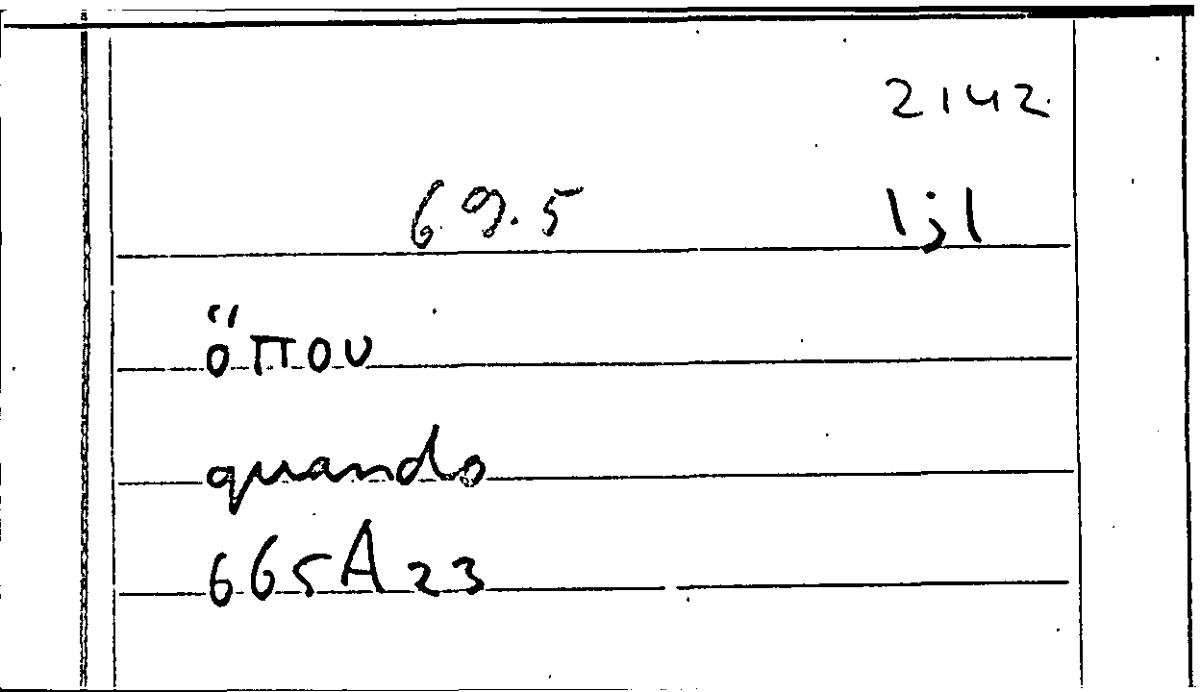 2142
69.5 إذا
ὅπου
quando
665A23